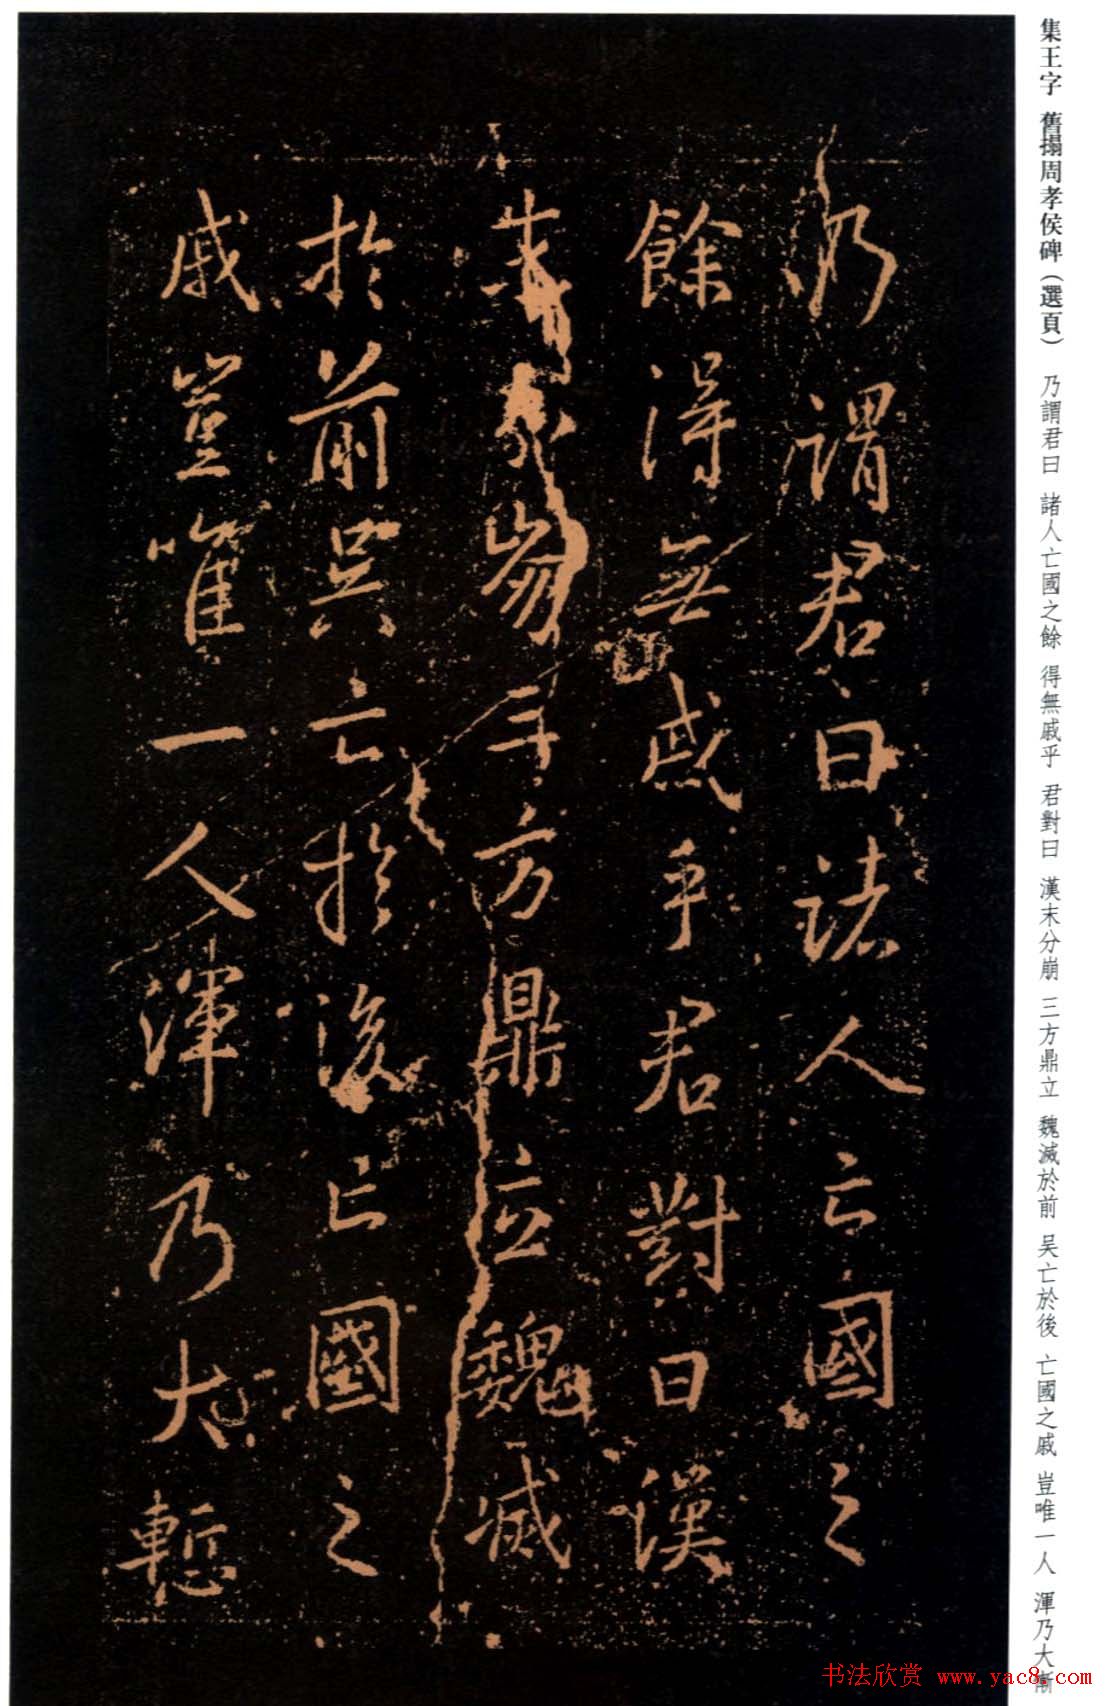 集王字 舊搨周孝侯碑（選頁） 乃謂君曰 諸人亡國之餘 得無戚乎 君對曰 漢末分崩 三方鼎立 魏滅於前 吴亡於後 亡國之戚 豈唯一人 渾乃大慚
乃謂君曰諸人亡國之
餘得無戚乎君對曰漢
末分崩三方鼎立魏滅
於前吴亡於後亡國之
戚豈唯一人渾乃大慙
书法欣赏 www.yac8.com